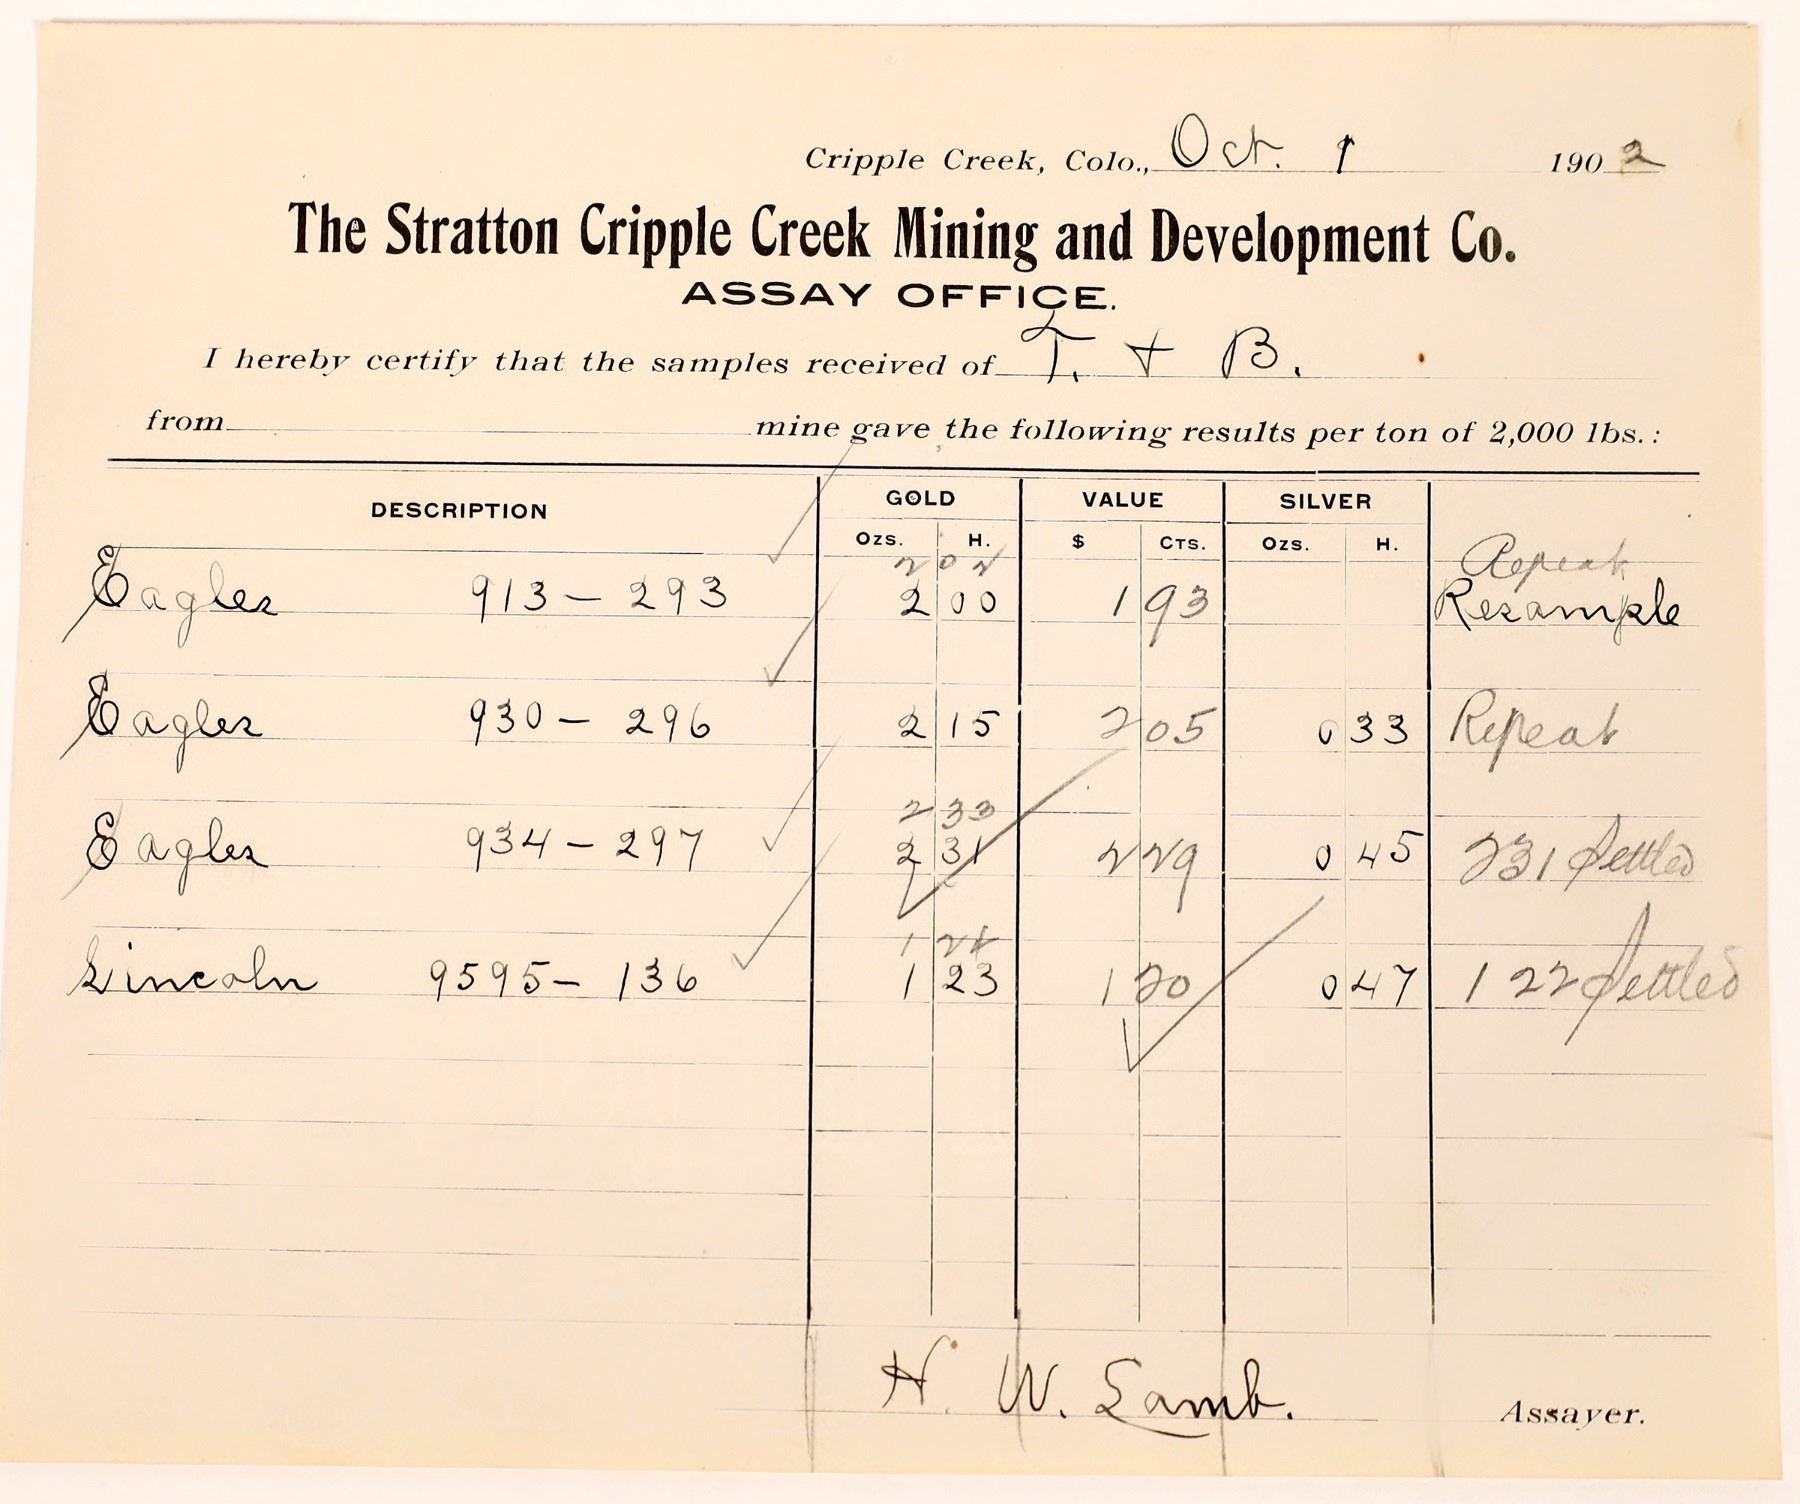 Cripple Creek, Colo., Oct. 1 1902
The Stratton Cripple Creek Mining and Development Co.
ASSAY OFFICE.
I hereby certify that the samples received of T. + B.
from mine gave the following results per ton of 2,000 lbs.:
DESCRIPTION GOLD VALUE SILVER
Ozs. H. $ Cts. Ozs. H.
2 02 Repeat
Eagles 913 - 293 2 00 1 93 Resample
Eagles 930 - 296 2 15 2 05 0 33 Repeat
2 33
Eagles 934 - 297 2 31 2 29 0 45 231 Settled
1 21
Lincoln 9595 - 136 1 23 1 20 0 47 1 22 Settled
H. W. Lamb. Assayer.